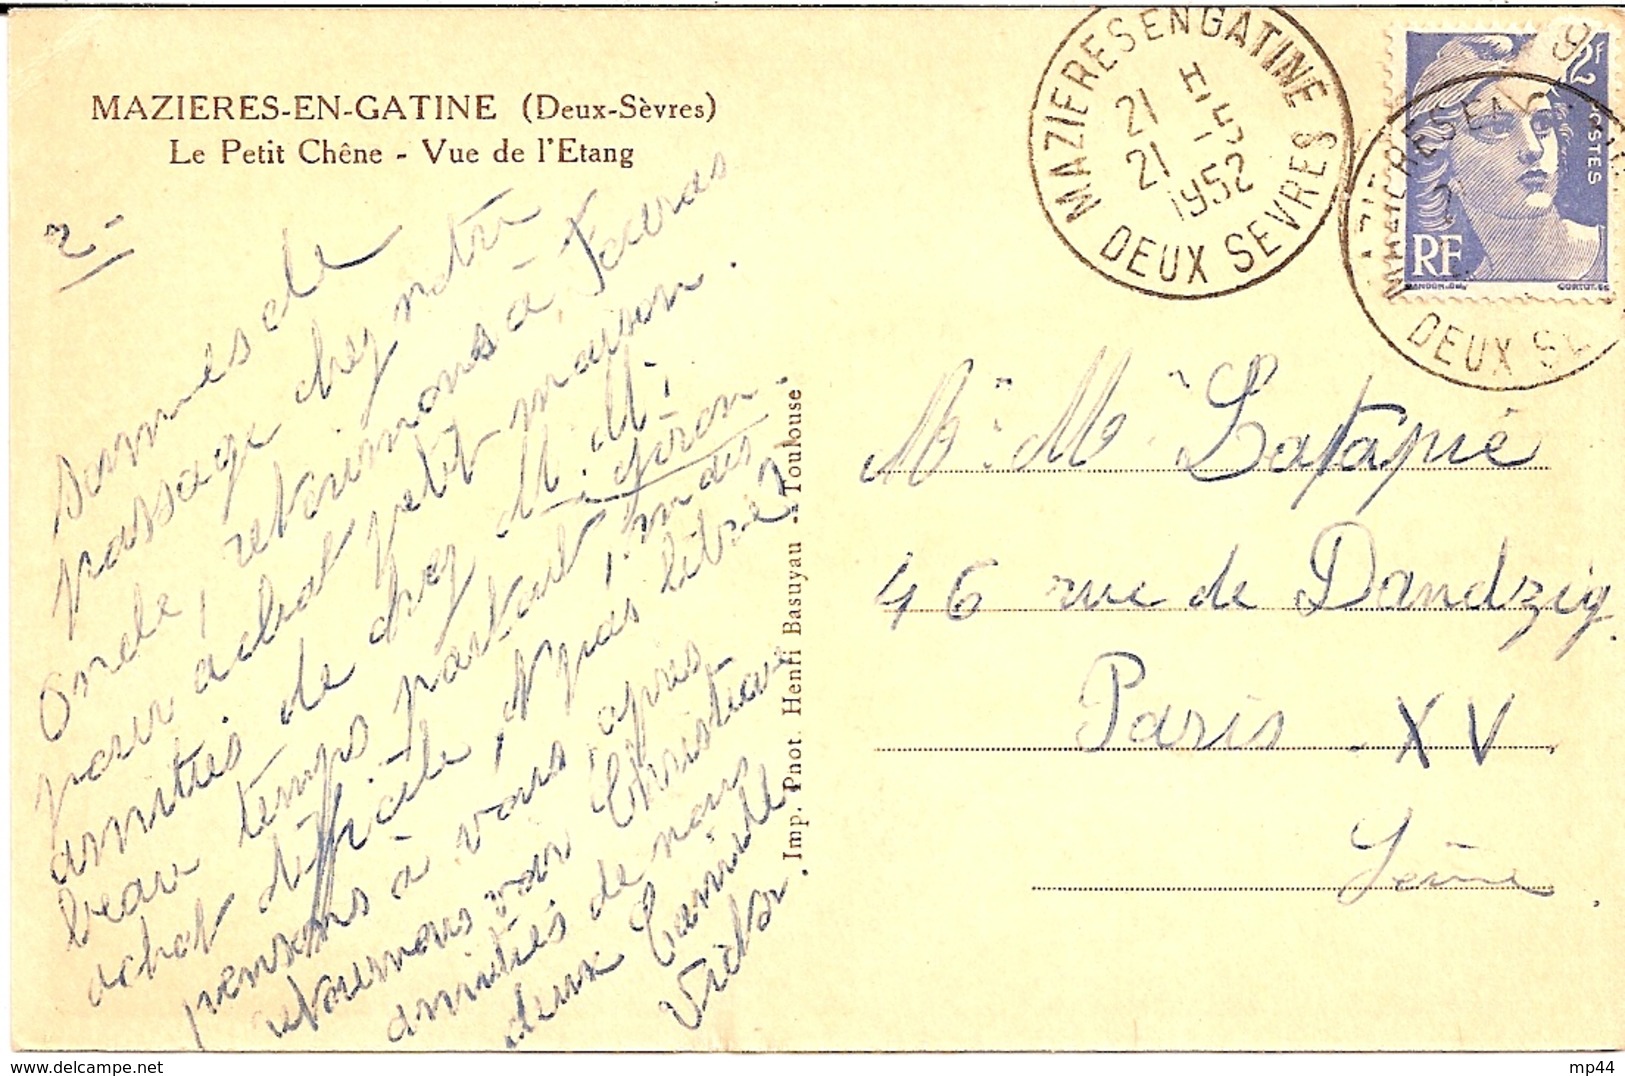 MAZIERES-EN-GATINE (Deux-Sèvres)
Le Petit Chêne - Vue de l'Etang
2-
sommes de
passage chez notre
oncle, retournons à
pour achat petit maison.
amitiés de chez M. M.
beau temps partout, mais
achat difficile, pas libre?
pensons à vous, après
retournons voir Christiane
amitiés de nous
deux Camille
Victor.
Imp. Phot. Henri Basuyau - Toulouse
MAZIERES EN GATINE
21 - 5
21 1952
DEUX SEVRES
2F
POSTES
RF
GANDON
CORTOT
MAZIERES EN
DEUX SE
Mr. M Latapie
46 rue de Dandzig.
Paris XV
Seine
mp44